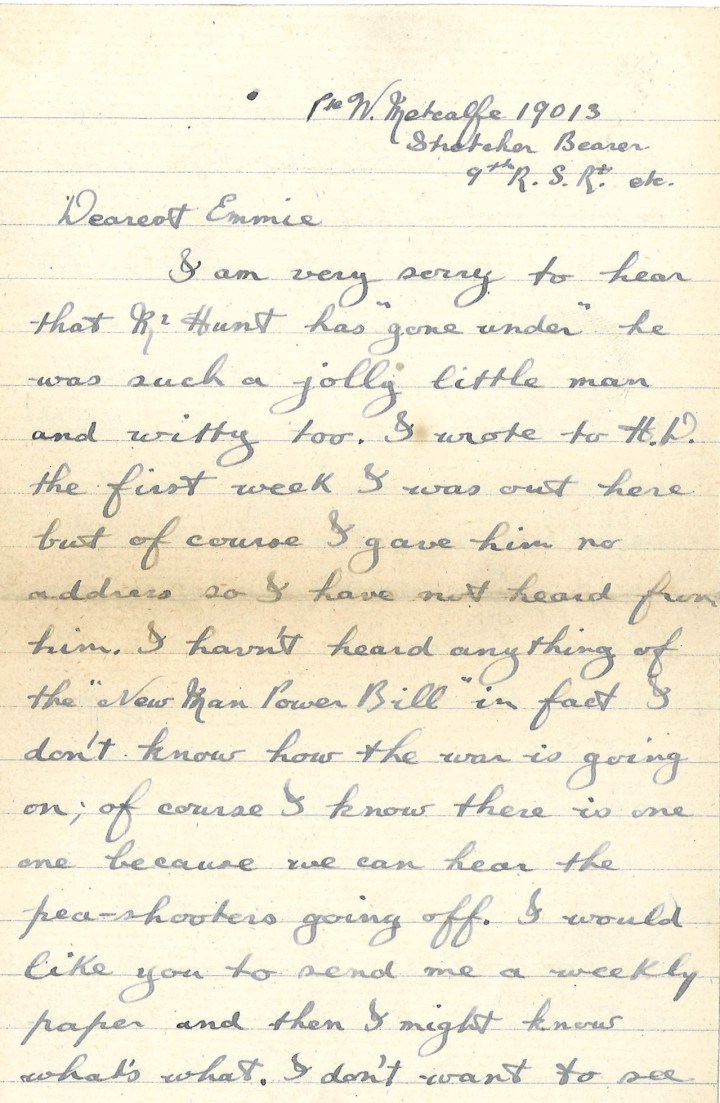 Pte W. Metcalfe 19013
Stretcher Bearer
9th R. S. Rt. etc.
Dearest Emmie
I am very sorry to hear
that Mr Hunt has "gone under" he
was such a jolly little man
and witty too. I wrote to H.D.
the first week I was out here
but of course I gave him no
address so I have not heard from
him. I havn't heard anything of
the "New Man Power Bill" in fact I
don't know how the war is going
on; of course I know there is one
one because we can hear the
pea-shooters going off. I would
like you to send me a weekly
paper and then I might know
what's what. I don't want to see